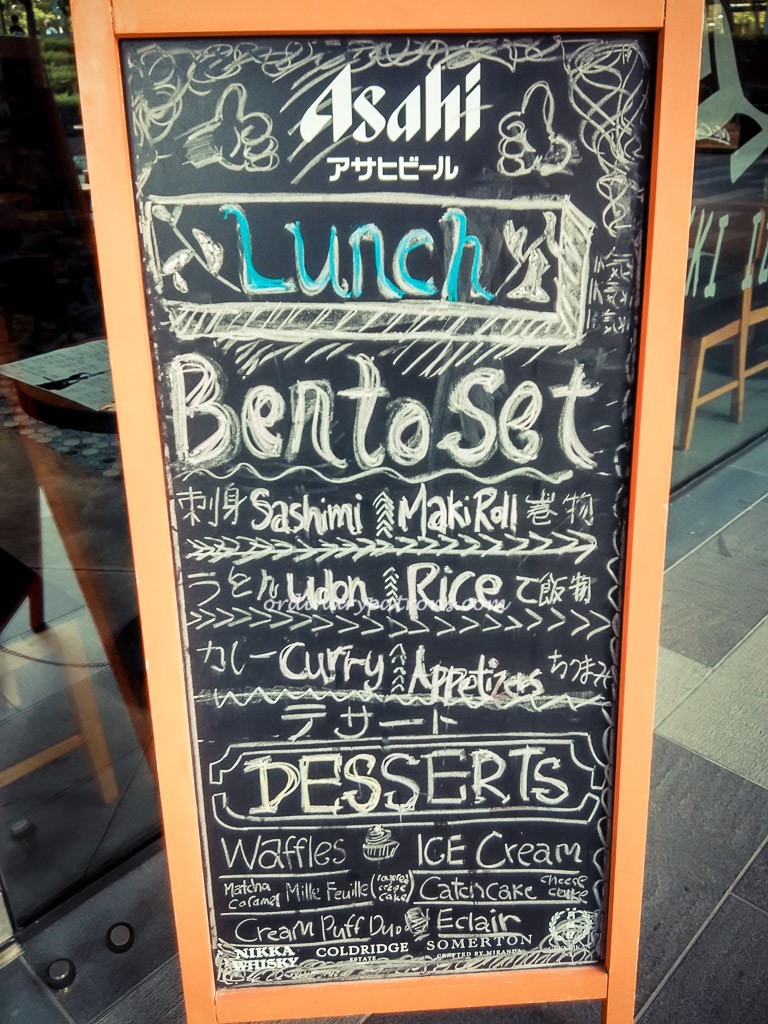 Asahi
アサヒビール
Lunch
Bento Set
刺身 Sashimi Maki Roll 巻物
うどん udon Rice ご飯物
カレー Curry Appetizers おつまみ
デザート
DESSERTS
Waffles ICE Cream
Matcha Caramel Mille Feuille (layered crepe cake) Catchcake cheese cake
Cream Puff Duo Eclair
NIKKA WHISKY COLDRIDGE ESTATE SOMERTON CRAFTED BY MIRANDA
ordinarypatrons.com